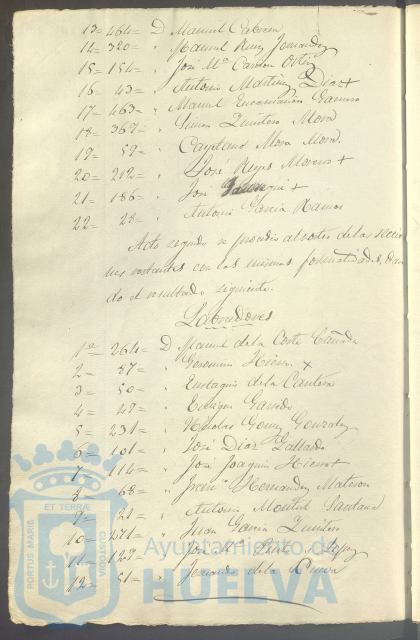 13= 464= D Manuel Cabrera
14= 320= " Manuel Ruiz Fernandez
15= 154= " José Mª Carrion Ortiz
16= 43= " Antonio Martinez Diaz +
17= 463= " Manuel Encarnación Gamero
18= 367= " Simon Quintero Mora
19= 59= " Cayetano Mora Mora.
20= 212= " José Reyes Moreno +
21= 186= " José +
22= 28= " Antonio Garcia Ramos
Acto seguido se procedió al sorteo de las seccio
nes restantes con las mismas formalidades, dan
do el resultado siguiente.
Labradores
1º= 264= D Manuel de la Corte Cañada
2= 87= " Geronimo +
3= 50= " Eustaquio de la Cantera
4= 49= " Enrique Garrido
5= 231= " Nicolas Gomez Gonzalez
6= 101= " José Diaz Gallardo
7= 114= " José Joaquin
8= 68= " Hernandez
9= 21= " Antonio Montiel Santana
10= 171= " Juan Garcia Quintero
11= 129= " José Mª
12= 51= " Fernando de la Cueva
PORTUS MARIS
ET TERRÆ
CUSTODIA
Ayuntamiento de
HUELVA